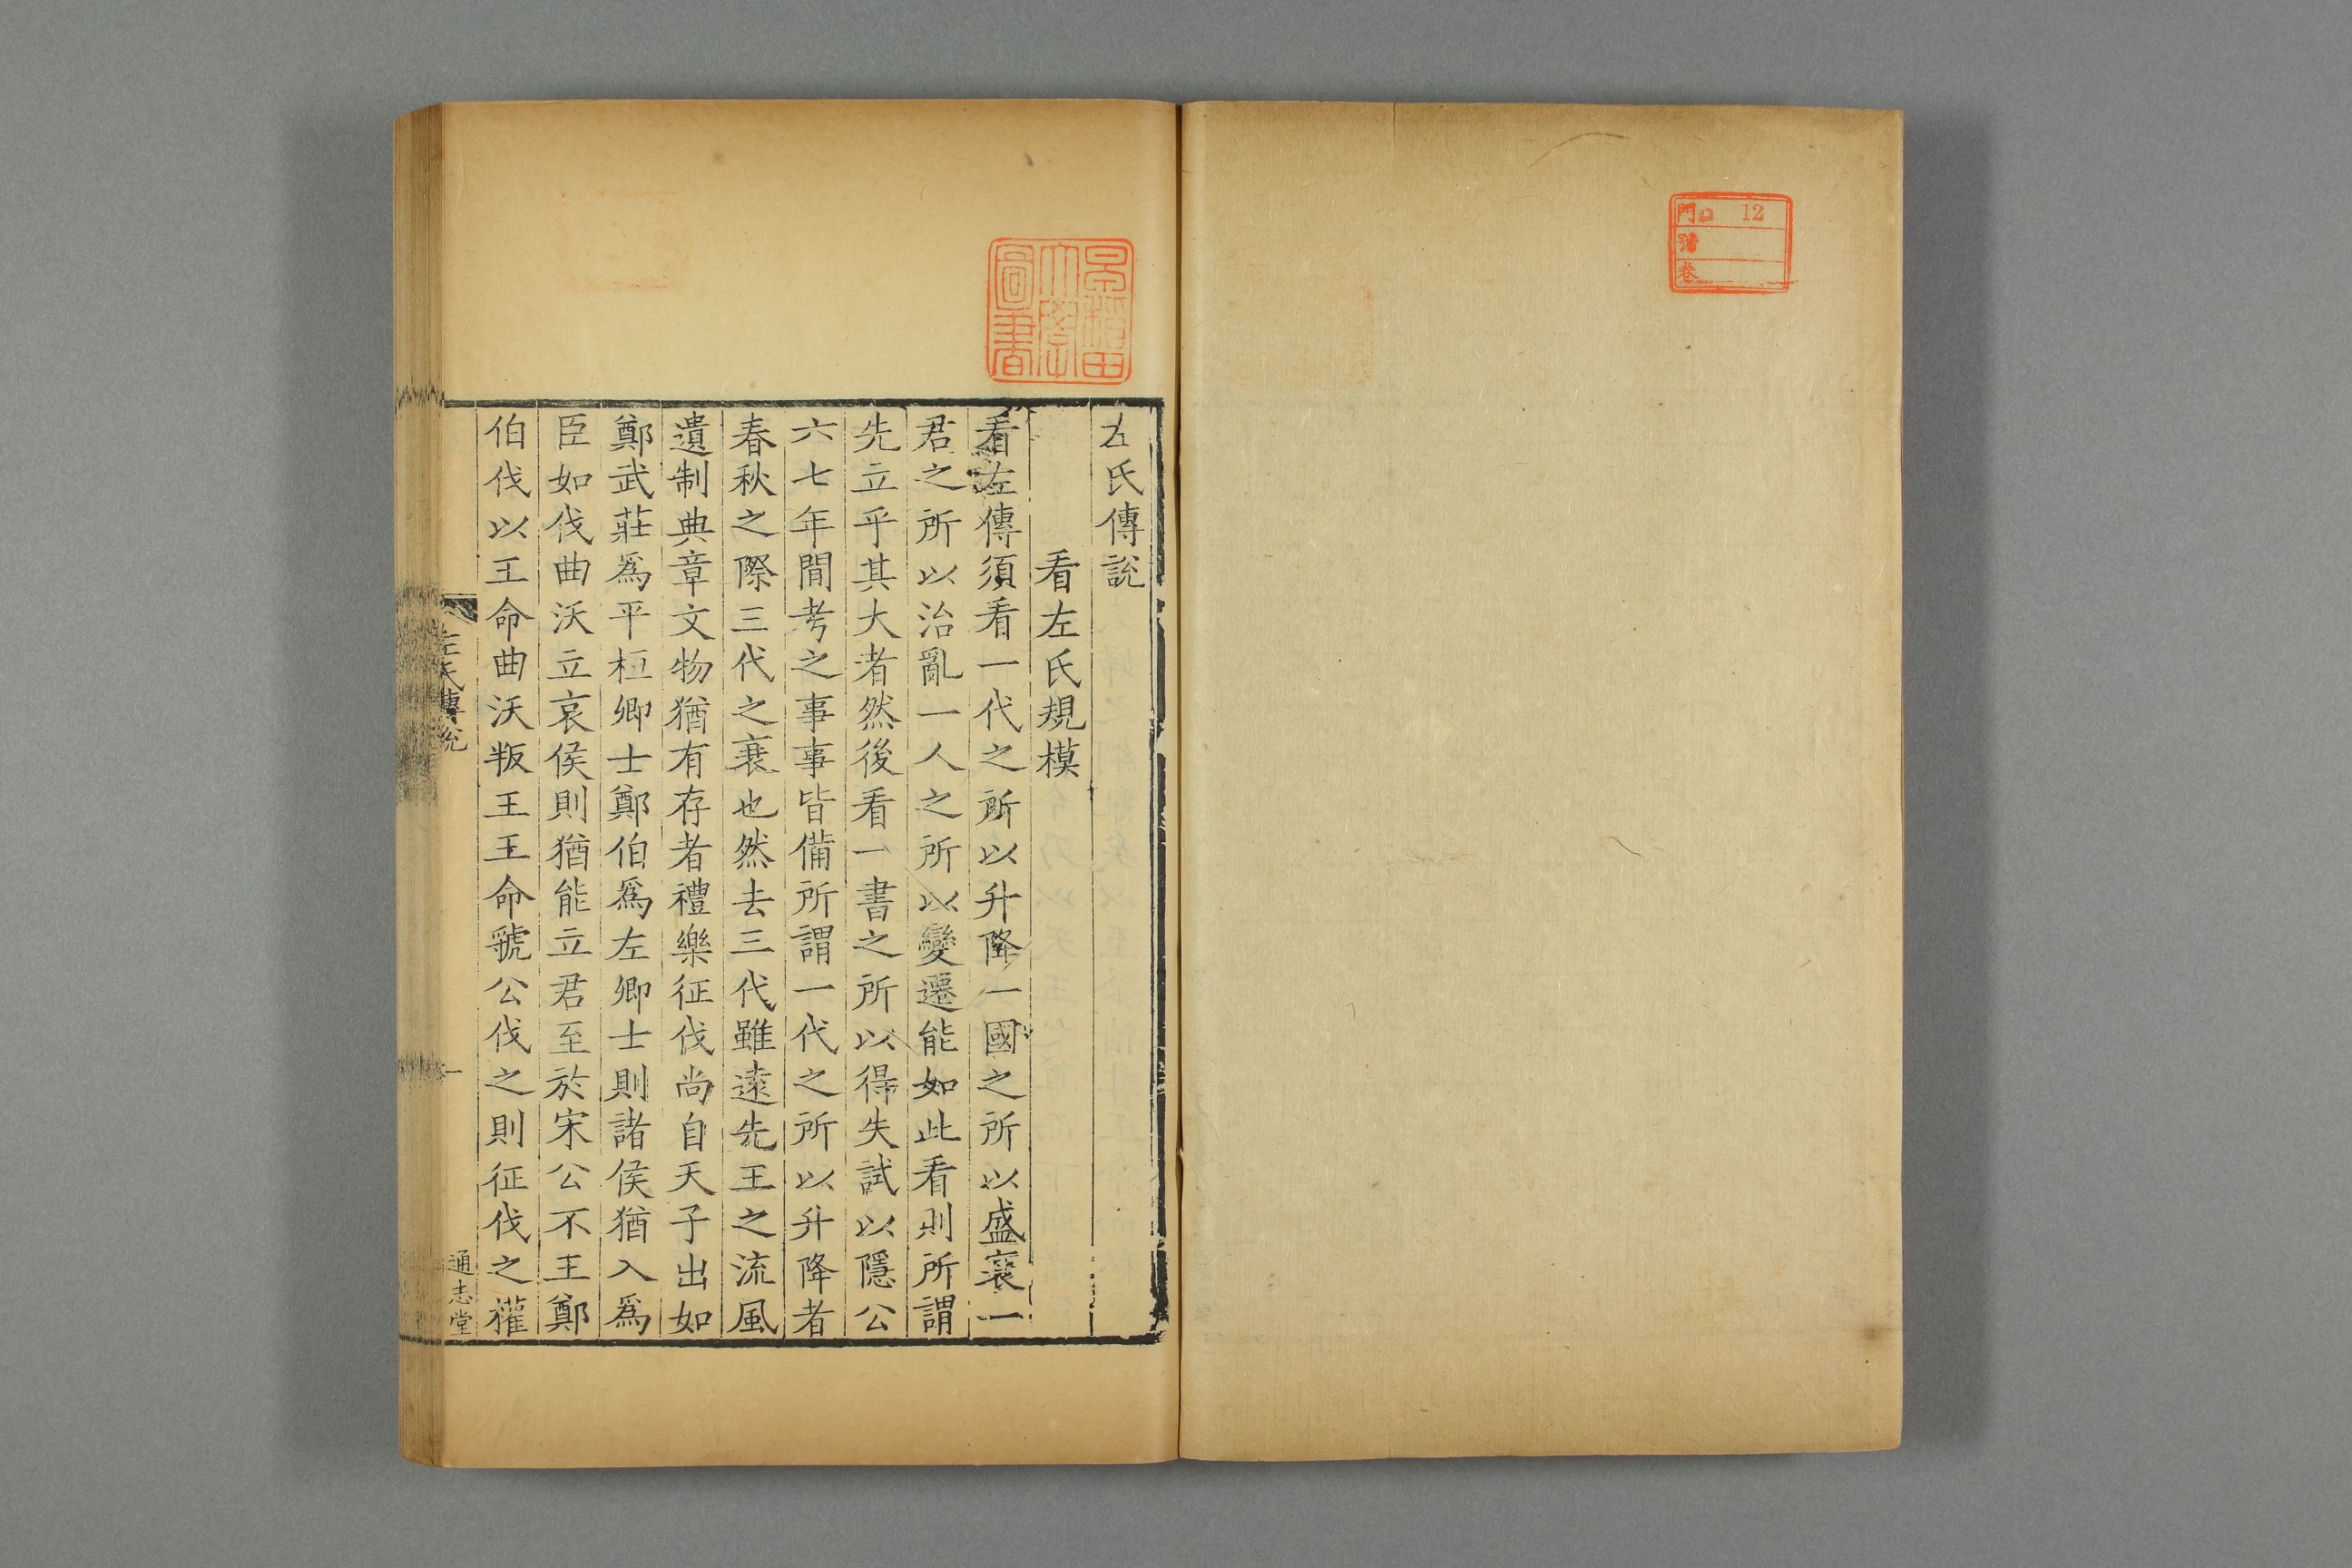 門 12
號
卷
早稲田
大學
圖書
左氏傳說
看左氏規模
看左傳須看一代之所以升降一國之所以盛衰一
君之所以治亂一人之所以變遷能如此看則所謂
先立乎其大者然後看一書之所以得失試以隱公
六七年間考之事事皆備所謂一代之所以升降者
春秋之際三代之衰也然去三代雖遠先王之流風
遺制典章文物猶有存者禮樂征伐尚自天子出如
鄭武莊爲平桓卿士鄭伯爲左卿士則諸侯猶入爲
臣如伐曲沃立哀侯則猶能立君至於宋公不王鄭
伯伐以王命曲沃叛王王命虢公伐之則征伐之權
左氏傳說
一
通志堂